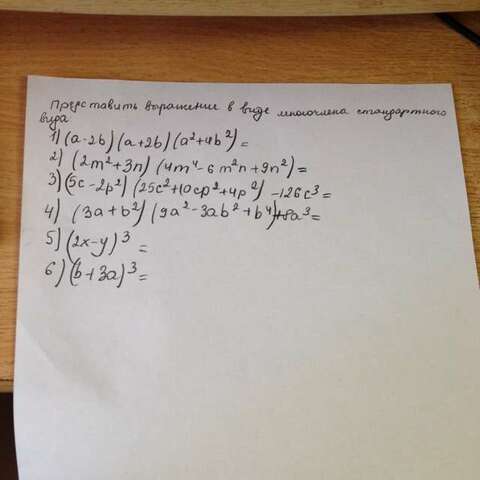 Представить выражение в виде многочлена стандартного
вида
1) (a-2b)(a+2b)(a²+4b²)=
2) (2m²+3n)(4m⁴-6m²n+9n²)=
3) (5c-2p²)(25c²+10cp²+4p²) -126c³=
4) (3a+b²)(9a²-3ab²+b⁴)+8a³=
5) (2x-y)³=
6) (b+3a)³=